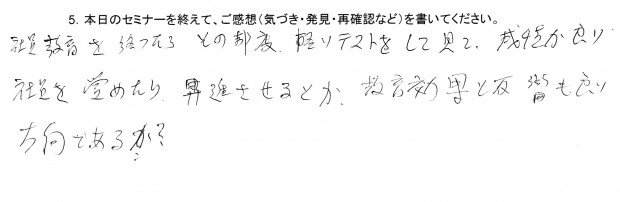 5. 本日のセミナーを終えて、ご感想(気づき・発見・再確認など)を書いてください。
社員教育を終ったら その都度、軽いテストをして見て、成績が良い
社員を 誉めたり、昇進させるとか、教育効果と反 も良い
方向であるか?